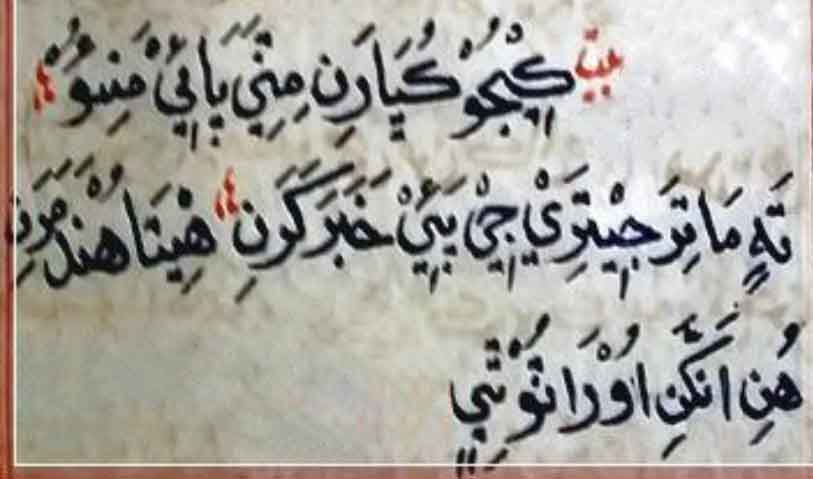 بيت كِيْجُوْ كُيَارِنِ مِنِيْ پَائِيْ مَنِوُ
تَہِ مَا تِرَ جِيْتِرِيْ جِيْ پَيِيْ خَبَرَ كَرَنِ هِيْتَا هُنْدَ مَرَنِ
هُنِ اَنكَنِ اُوْرَا تُوْ تِي